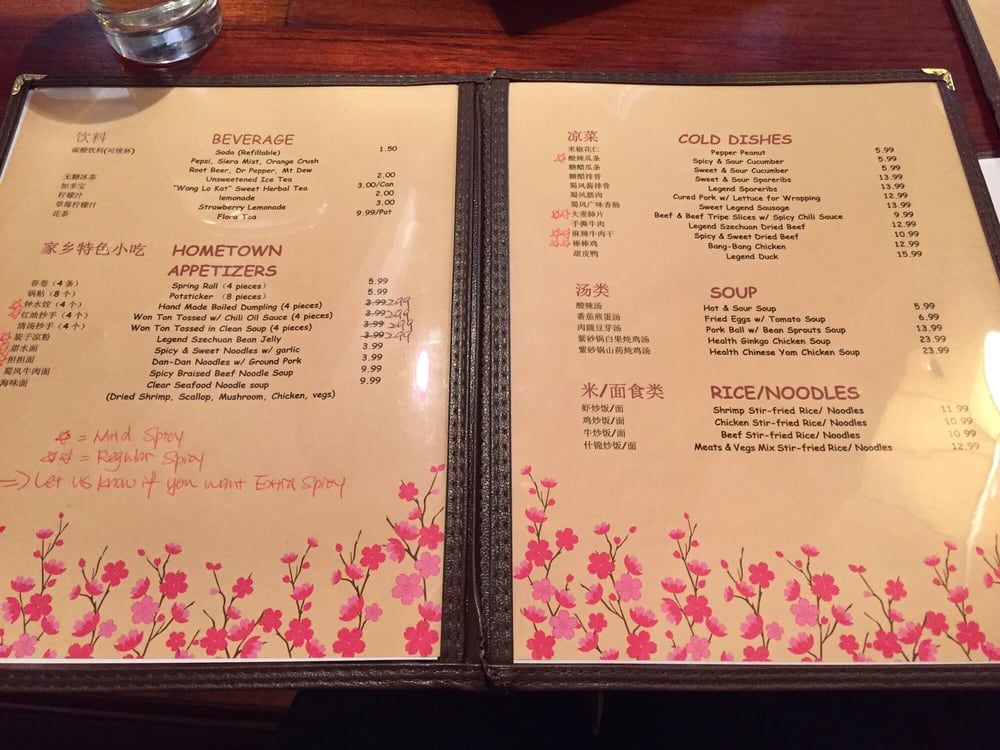 饮料 BEVERAGE
碳酸饮料(可续杯) Soda (Refillable) 1.50
Pepsi, Siera Mist, Orange Crush
Root Beer, Dr Pepper, Mt Dew
无糖冰茶 Unsweetened Ice Tea 2.00
加多宝 "Wang Lo Kat" Sweet Herbal Tea 3.00/Can
柠檬汁 lemonade 2.00
草莓柠檬汁 Strawberry Lemonade 3.00
花茶 Flora Tea 9.99/Pot
家乡特色小吃 HOMETOWN
APPETIZERS
春卷（4 条） Spring Roll (4 pieces) 5.99
锅贴（8 个） Potsticker （8 pieces） 5.99
钟水饺（4 个） Hand Made Boiled Dumpling (4 pieces) 3.99 2.99
红油抄手（4 个） Won Ton Tossed w/ Chili Oil Sauce (4 pieces) 3.99 2.99
清汤抄手（4 个） Won Ton Tossed in Clean Soup (4 pieces) 3.99 2.99
旋子凉粉 Legend Szechuan Bean Jelly 3.99 2.99
甜水面 Spicy & Sweet Noodles w/ garlic 3.99
担担面 Dan-Dan Noodles w/ Ground Pork 3.99
蜀风牛肉面 Spicy Braised Beef Noodle Soup 9.99
海味面 Clear Seafood Noodle soup 9.99
(Dried Shrimp, Scallop, Mushroom, Chicken, vegs)
= Mild Spicy
= Regular Spicy
=> Let us know if you want Extra Spicy
凉菜 COLD DISHES
米椒花仁 Pepper Peanut 5.99
酸辣瓜条 Spicy & Sour Cucumber 5.99
糖醋瓜条 Sweet & Sour Cucumber 5.99
糖醋排骨 Sweet & Sour Spareribs 13.99
蜀风酱排骨 Legend Spareribs 13.99
蜀风腊肉 Cured Pork w/ Lettuce for Wrapping 12.99
蜀风广味香肠 Sweet Legend Sausage 13.99
夫妻肺片 Beef & Beef Tripe Slices w/ Spicy Chili Sauce 9.99
手撕牛肉 Legend Szechuan Dried Beef 12.99
麻辣牛肉干 Spicy & Sweet Dried Beef 10.99
棒棒鸡 Bang-Bang Chicken 12.99
甜皮鸭 Legend Duck 15.99
汤类 SOUP
酸辣汤 Hot & Sour Soup 5.99
番茄煎蛋汤 Fried Eggs w/ Tomato Soup 6.99
肉圆豆芽汤 Pork Ball w/ Bean Sprouts Soup 13.99
紫砂锅白果炖鸡汤 Health Ginkgo Chicken Soup 23.99
紫砂锅山药炖鸡汤 Health Chinese Yam Chicken Soup 23.99
米/面食类 RICE/NOODLES
虾炒饭/面 Shrimp Stir-fried Rice/ Noodles 11.99
鸡炒饭/面 Chicken Stir-fried Rice/ Noodles 10.99
牛炒饭/面 Beef Stir-fried Rice/ Noodles 10.99
什锦炒饭/面 Meats & Vegs Mix Stir-fried Rice/ Noodles 12.99